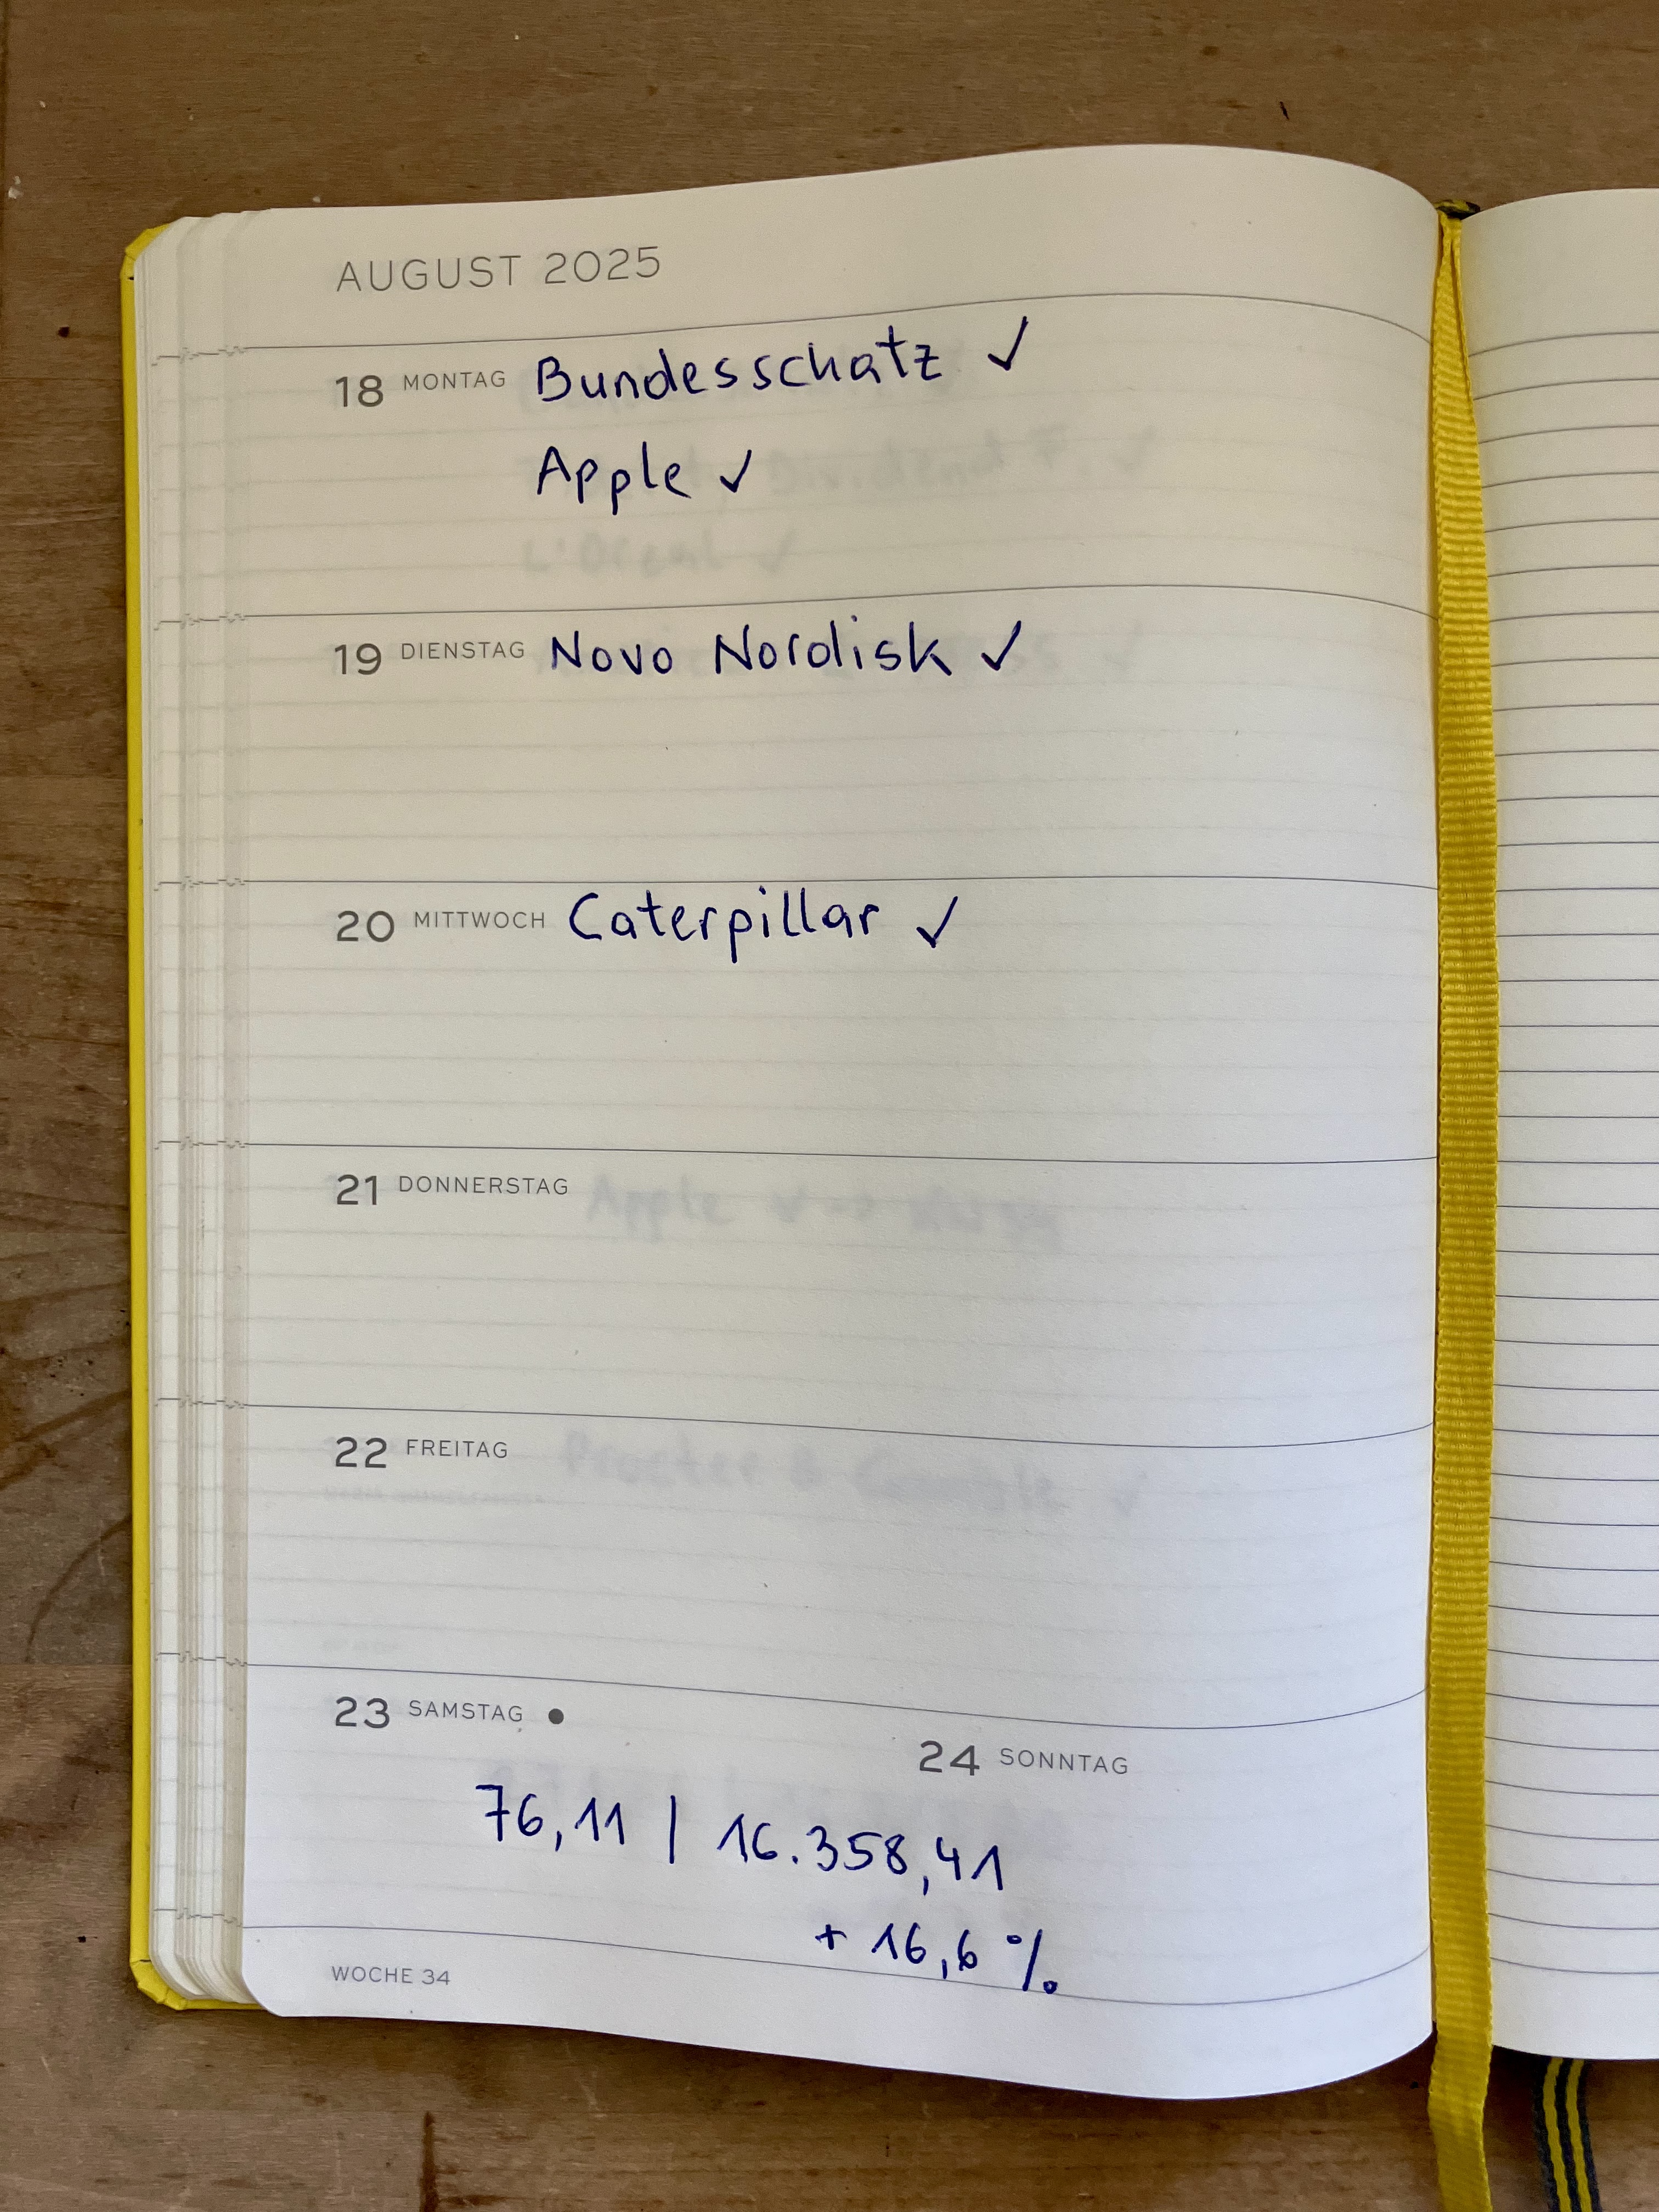 AUGUST 2025
18 MONTAG Bundesschatz ✓
Apple ✓
L'Oréal ✓
19 DIENSTAG Novo Nordisk ✓
20 MITTWOCH Caterpillar ✓
21 DONNERSTAG
Apple ✓
22 FREITAG
Procter & Gamble ✓
23 SAMSTAG
24 SONNTAG
76,11 | 16.358,41
+ 16,6 %
WOCHE 34